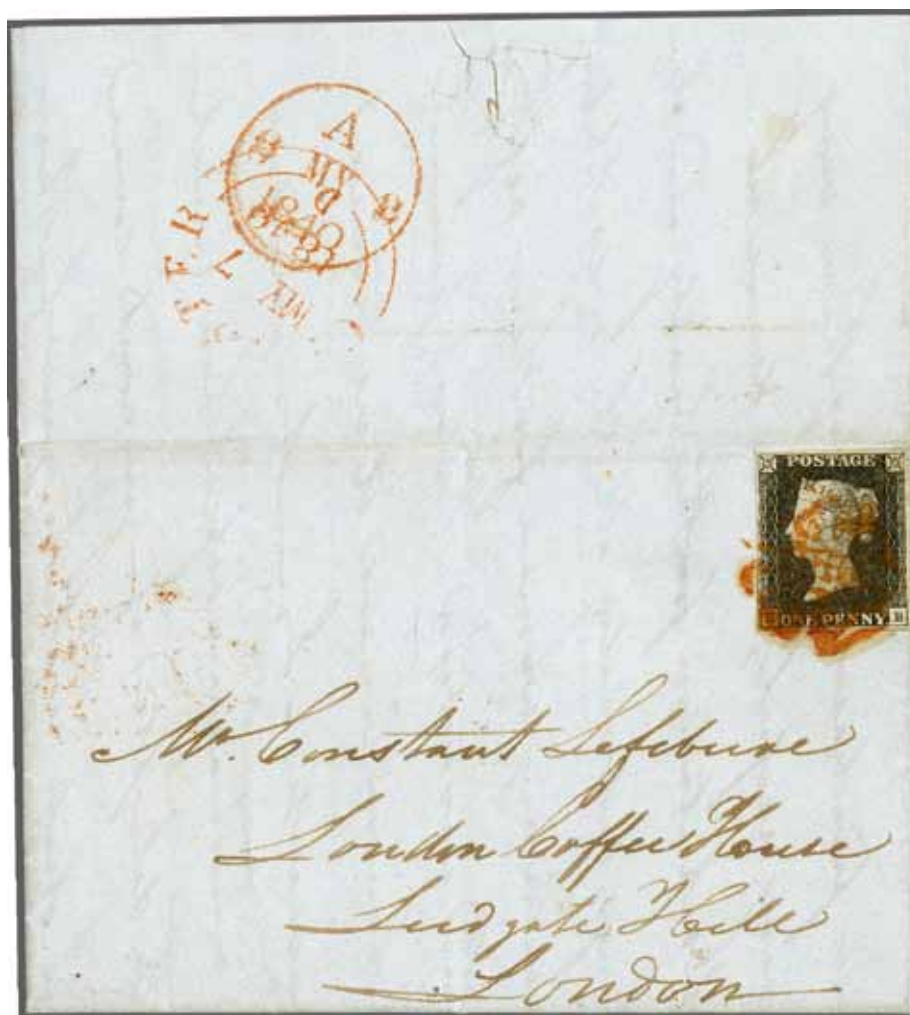 A
MY
1840
MY
POSTAGE
ONE PENNY
Mr. Constant Lefebure
London Coffee House
Ludgate Hill
London